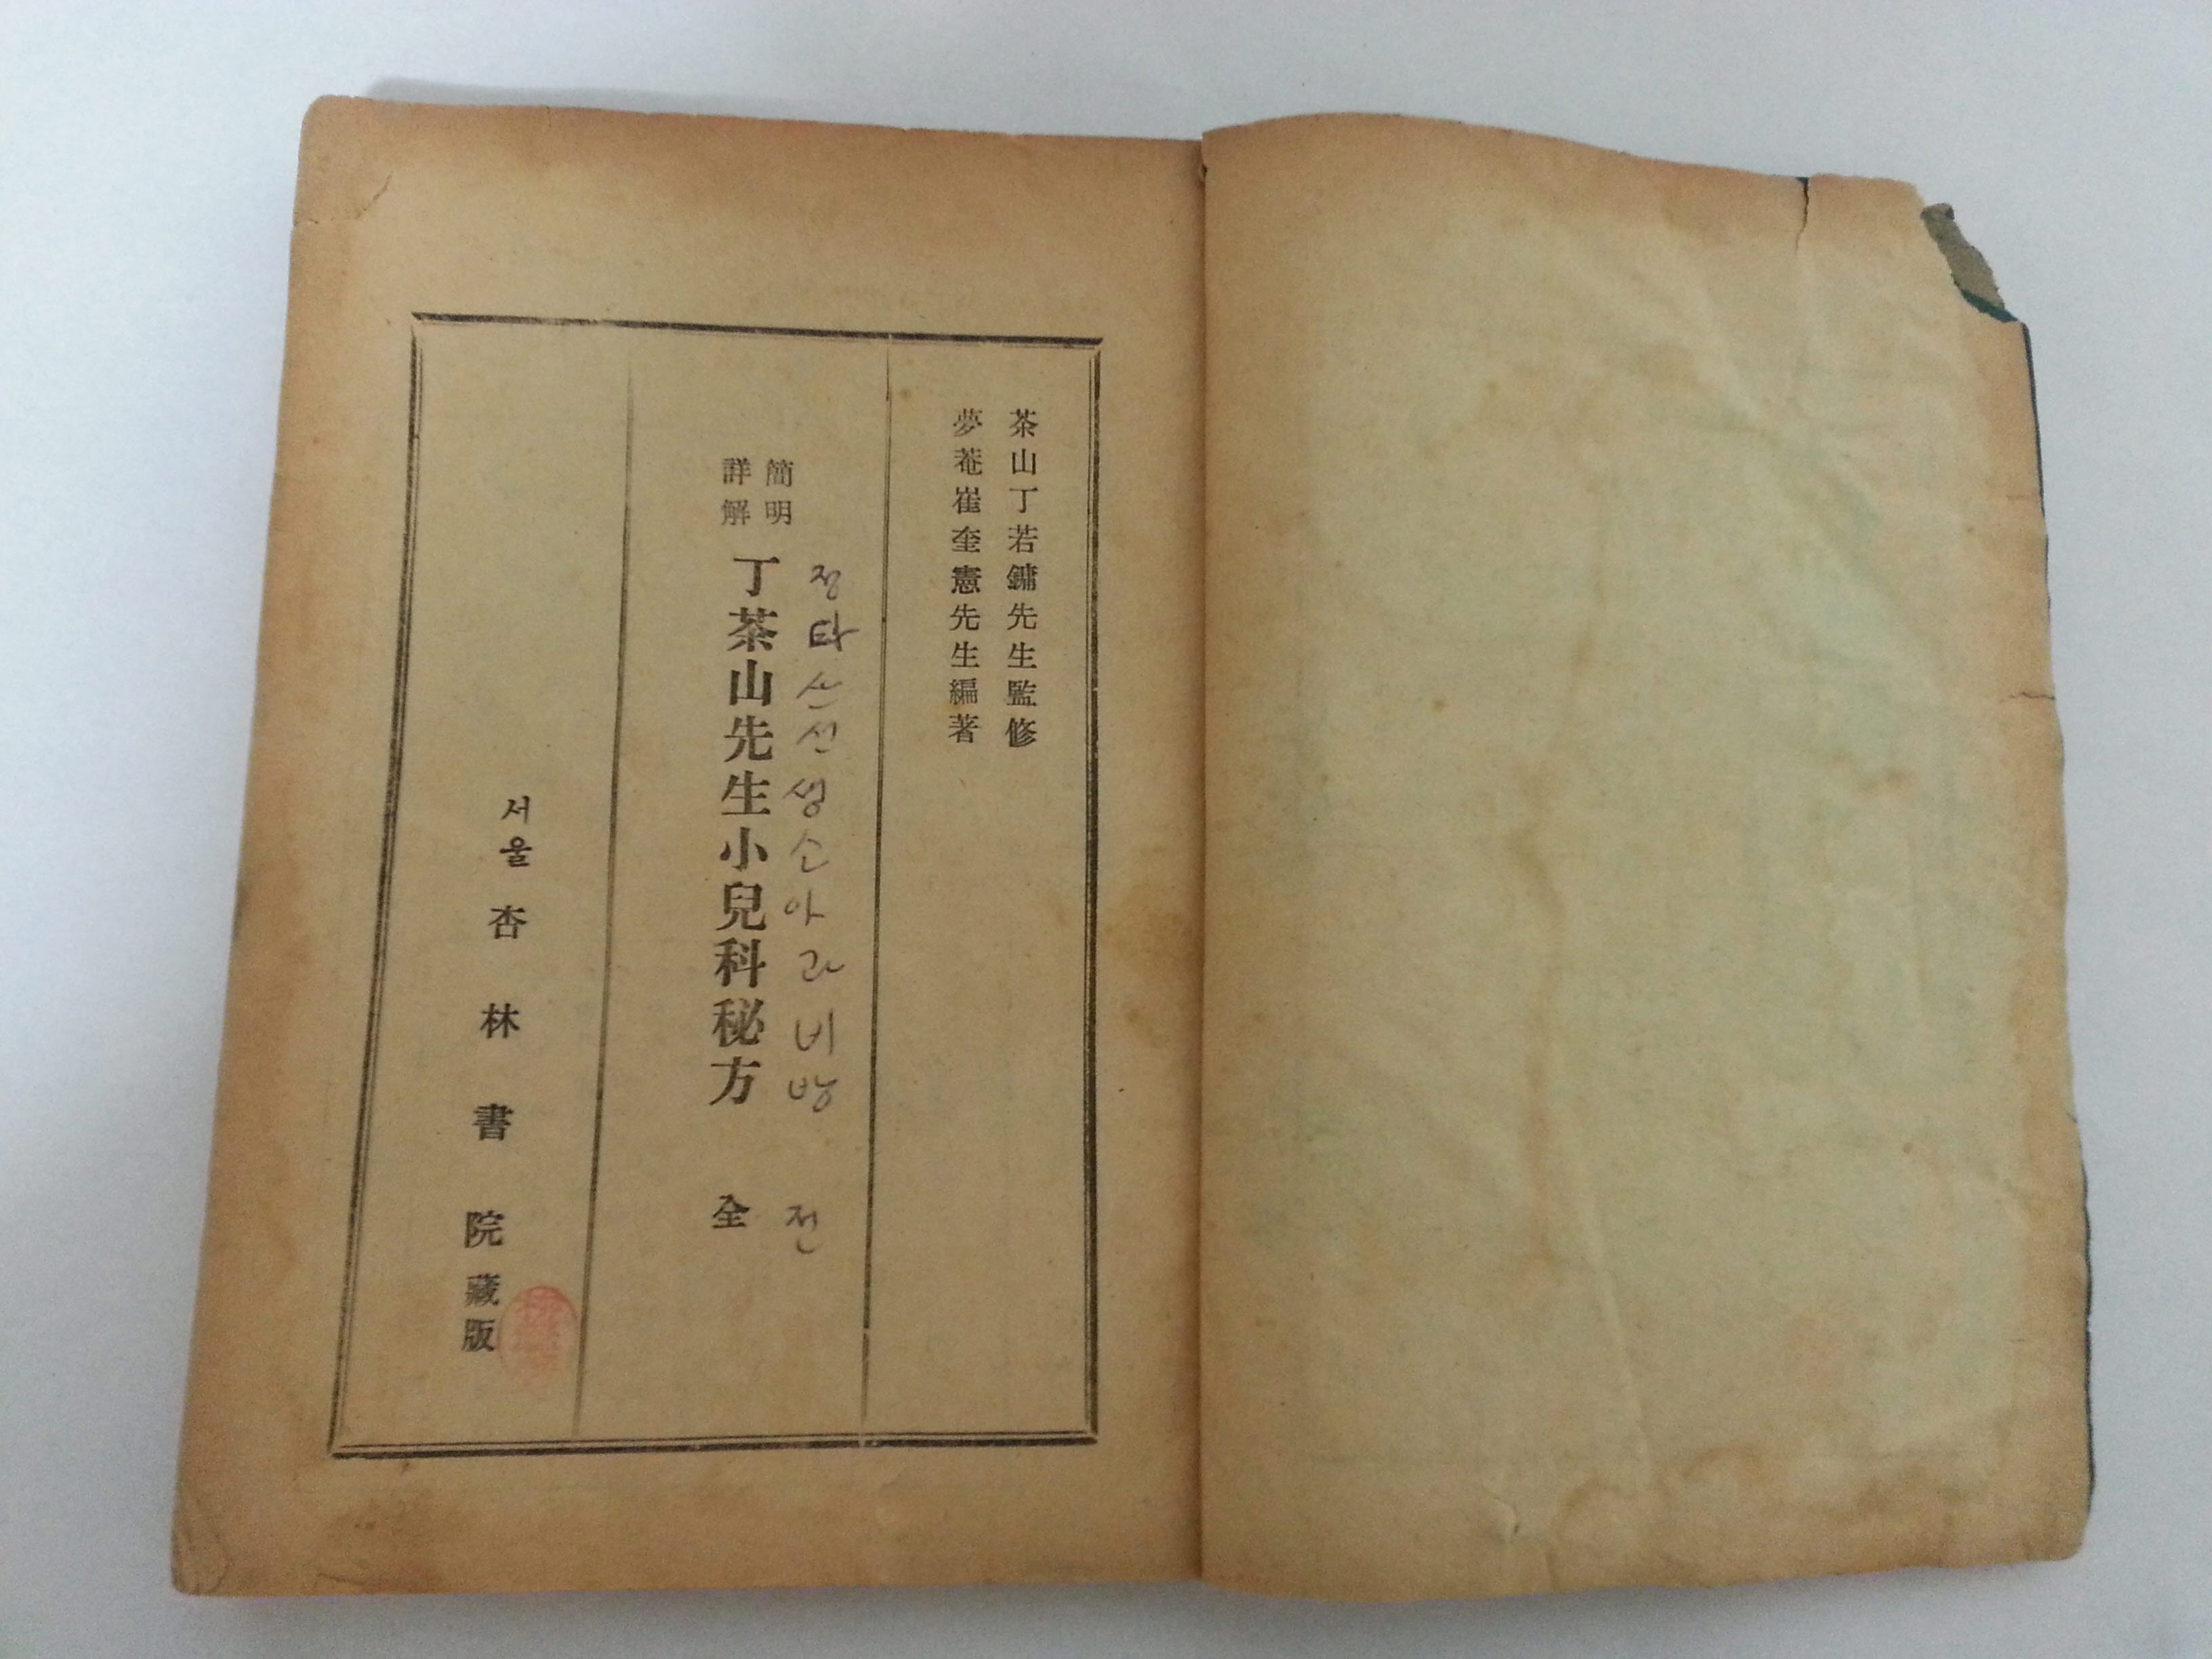 茶山丁若鏞先生監修
夢菴崔奎憲先生編著
簡明
詳解
丁茶山先生小兒科秘方 全
정타산선생소아과비방 전
서울 杏林書院藏版